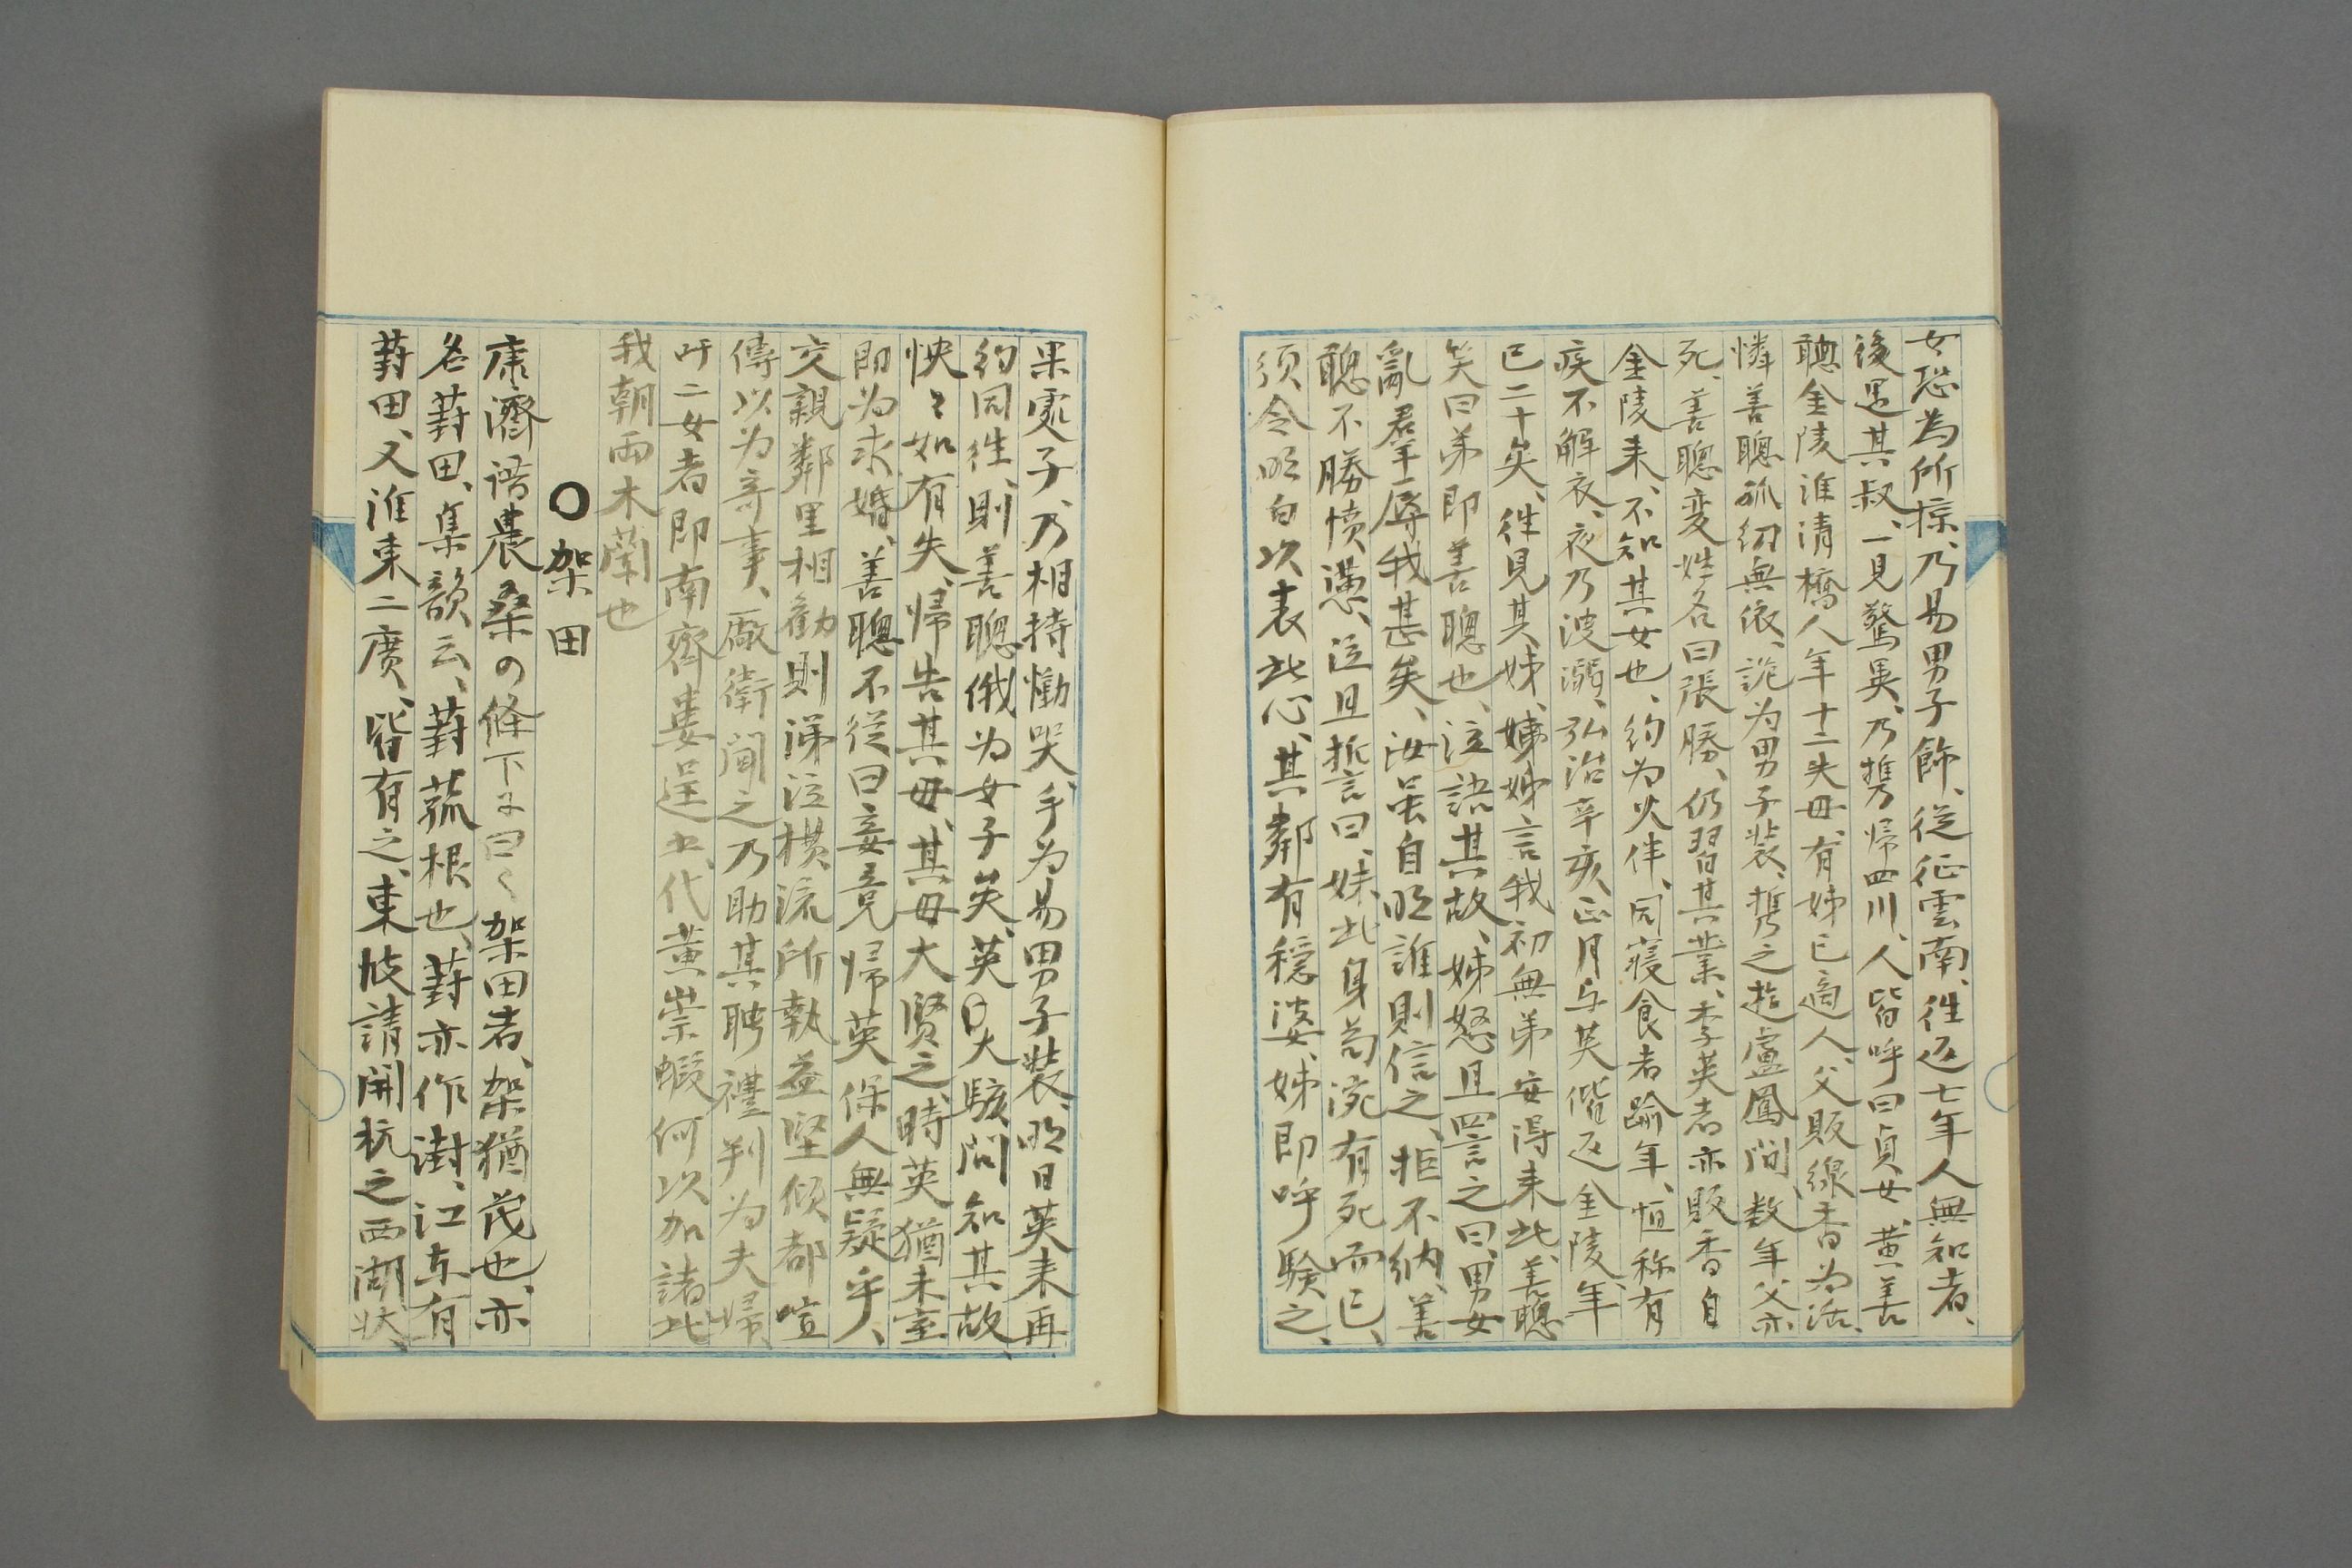 女恐為所掠、乃易男子飾、従征雲南、往返七年人無知者、
後遇其叔、一見驚異、乃携帰四川、人皆呼曰貞女、黄善
聰金陵淮清橋人年十二失母、有姊已適人、父販線香為活、
憐善聰孤幼無依、詭为男子裝、携之遊盧鳳間、数年父亦
死、善聰変姓名曰張勝、仍習其業、李英者亦販香自
金陵来、不知其女也、約为火伴、同寢食者踰年、恒称有
疾不解衣、夜乃溲溺、弘治辛亥正月与英偕返金陵、年
已二十矣、往見其姊、姊言我初無弟安得来此、善聰
笑曰弟即善聰也、泣語其故、姊怒且詈之曰、男女
亂羣辱我甚矣、汝虽自明誰則信之、拒不納、善
聰不勝憤懣、泣且誓言曰、妹此身苟涴有死而已、
須令明白以表此心、其鄰有穏婆、姊即呼験之、
果処子、乃相持慟哭、手为易男子裝、明日英来再
約同往、則善聰俄为女子矣、英大駭問知其故、
怏々如有失、帰告其母、其母大賢之、時英猶未室
即为求婚、善聰不従曰妾竟帰英保人無疑乎、
交親鄰里相勧則涕泣横流所執益堅傾都喧
傳以为奇事、廠衛聞之乃助其聘禮判为夫婦、
吁二女者即南齊婁逞、五代黄崇嘏何以加諸此
我朝兩木蘭也
〇架田
康濟譜農桑の條下ニ曰く架田者、架猶茷也、亦
名葑田、集韻云、葑菰根也、葑亦作澍、江东有
葑田、又淮東二廣、皆有之、東坡請開杭之西湖状、